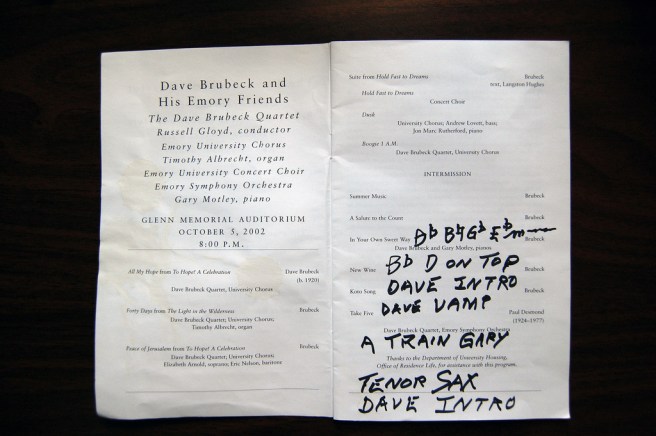 Dave Brubeck and
His Emory Friends
The Dave Brubeck Quartet
Russell Gloyd, conductor
Emory University Chorus
Timothy Albrecht, organ
Emory University Concert Choir
Emory Symphony Orchestra
Gary Motley, piano
GLENN MEMORIAL AUDITORIUM
OCTOBER 3, 2002
8:00 P.M.
All My Hope from To Hope! A Celebration Dave Brubeck
(b. 1920)
Dave Brubeck Quartet, University Chorus
Forty Days from The Light in the Wilderness Brubeck
Dave Brubeck Quartet; University Chorus;
Timothy Albrecht, organ
Peace of Jerusalem from To Hope! A Celebration Brubeck
Dave Brubeck Quartet; University Chorus;
Elizabeth Arnold, soprano; Eric Nelson, baritone
Suite from Hold Fast to Dreams Brubeck
text, Langston Hughes
Hold Fast to Dreams
Concert Choir
Dusk
University Chorus; Andrew Lovett, bass;
Jon Marc Rutherford, piano
Boogie 1 A.M.
Dave Brubeck Quartet, University Chorus
INTERMISSION
Summer Music Brubeck
A Salute to the Count Brubeck
In Your Own Sweet Way Brubeck
Dave Brubeck and Gary Motley, pianos
New Wine Brubeck
Bb D ON TOP
Koto Song Brubeck
DAVE INTRO
Take Five Paul Desmond
(1924-1977)
DAVE VAMP
Dave Brubeck Quartet, Emory Symphony Orchestra
A TRAIN GARY
Thanks to the Department of University Housing,
Office of Residence Life, for assistance with this program.
TENOR SAX
DAVE INTRO